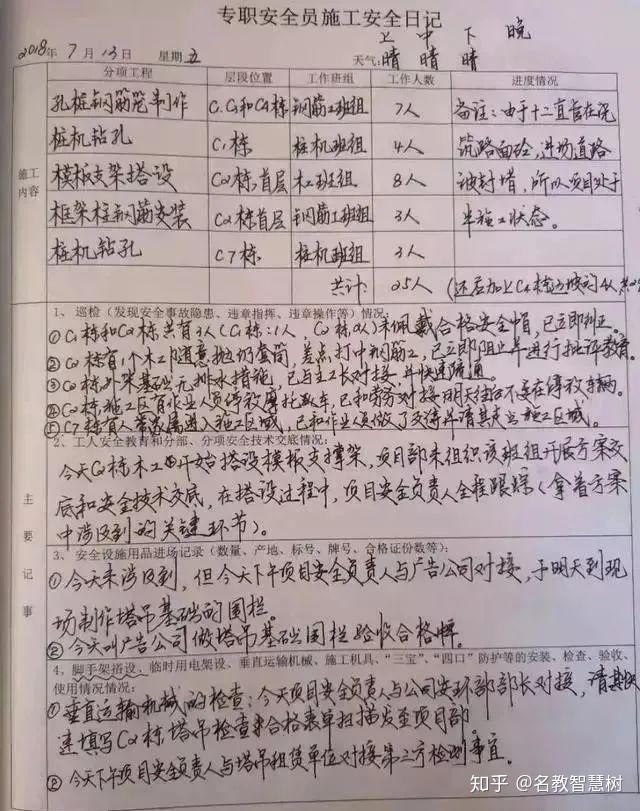 专职安全员施工安全日记
上 中 下 晚
2018年 7月 13日 星期五 天气: 晴 晴 晴
分项工程 层段位置 工作班组 工作人数 进度情况
施工内容
孔桩钢筋笼制作 C1、C3和C4栋 钢筋工班组 7人 备注:由于十二直管在浇
桩机钻孔 C1栋 桩机班组 4人 筑路面砼,进场道路
模板支架搭设 C2栋首层 木工班组 8人 被封堵,所以项目处于
框架柱钢筋安装 C2栋首层 钢筋工班组 3人 半施工状态。
桩机钻孔 C7栋 桩机班组 3人
共计: 25人 (还应加上C4栋边坡的4人
主要记事
1、巡检(发现安全事故隐患、违章指挥、违章操作等)情况:
①C1栋和C2栋共有3人(C1栋:1人,C2栋2人)未佩戴合格安全中帽,已立即纠正。
②C2栋有1个木工随意抛扔套筒,差点打中钢筋工,已立即阻止并进行批评教育。
③C2栋外架基础无排水措施,已与主工长对接,并快速疏通。
④C2栋施工区有作业人员停放摩托车,已和劳务对接明天往后不要在停放车辆。
⑤C7栋有人带家属进入施工区域,已和作业人员做了交待并请其走出施工区域。
2、工人安全教育和分部、分项安全技术交底情况:
今天C2栋木工开始搭设模板支撑架,项目部未组织该班组开展方案交
底和安全技术交底,在搭设过程中,项目安全负责人全程跟踪(拿着方案
中涉及到的关键环节)。
3、安全设施用品进场记录(数量、产地、标号、牌号、合格证份数等):
①今天未涉及到,但今天下午项目安全负责人与广告公司对接,于明天到现
场制作塔吊基础的围栏。
②今天叫广告公司做塔吊基础围栏验收合格牌。
4、脚手架搭设、临时用电架设、垂直运输机械、施工机具、“三宝”、“四口”防护等的安装、检查、验收、
使用情况情况:
①垂直运输机械的检查:今天项目安全负责人与公司安环部部长对接,请其快
速填写C2栋塔吊检查合格表单扫描发至项目部。
②今天下午项目安全负责人与塔吊租赁单位对接第三方检测事宜。
知乎 @名教智慧树